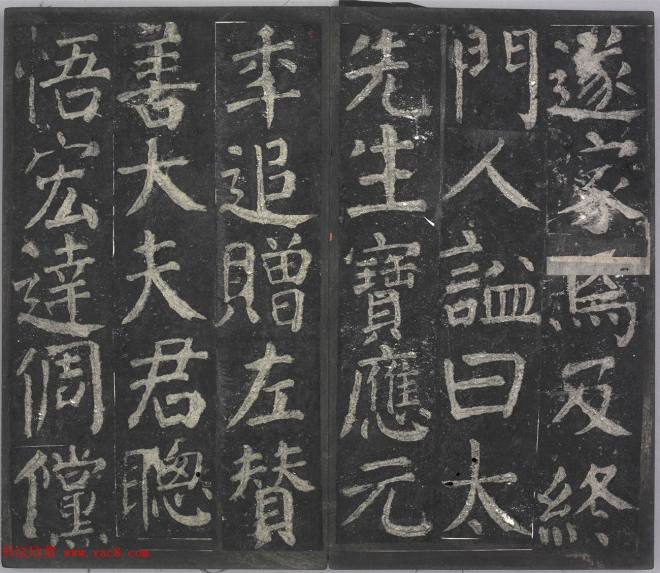 遂家焉及終
門人謚曰太
先生寶應元
年追贈左贊
善大夫君聰
悟宏達倜儻
书法欣赏 www.yac8.com